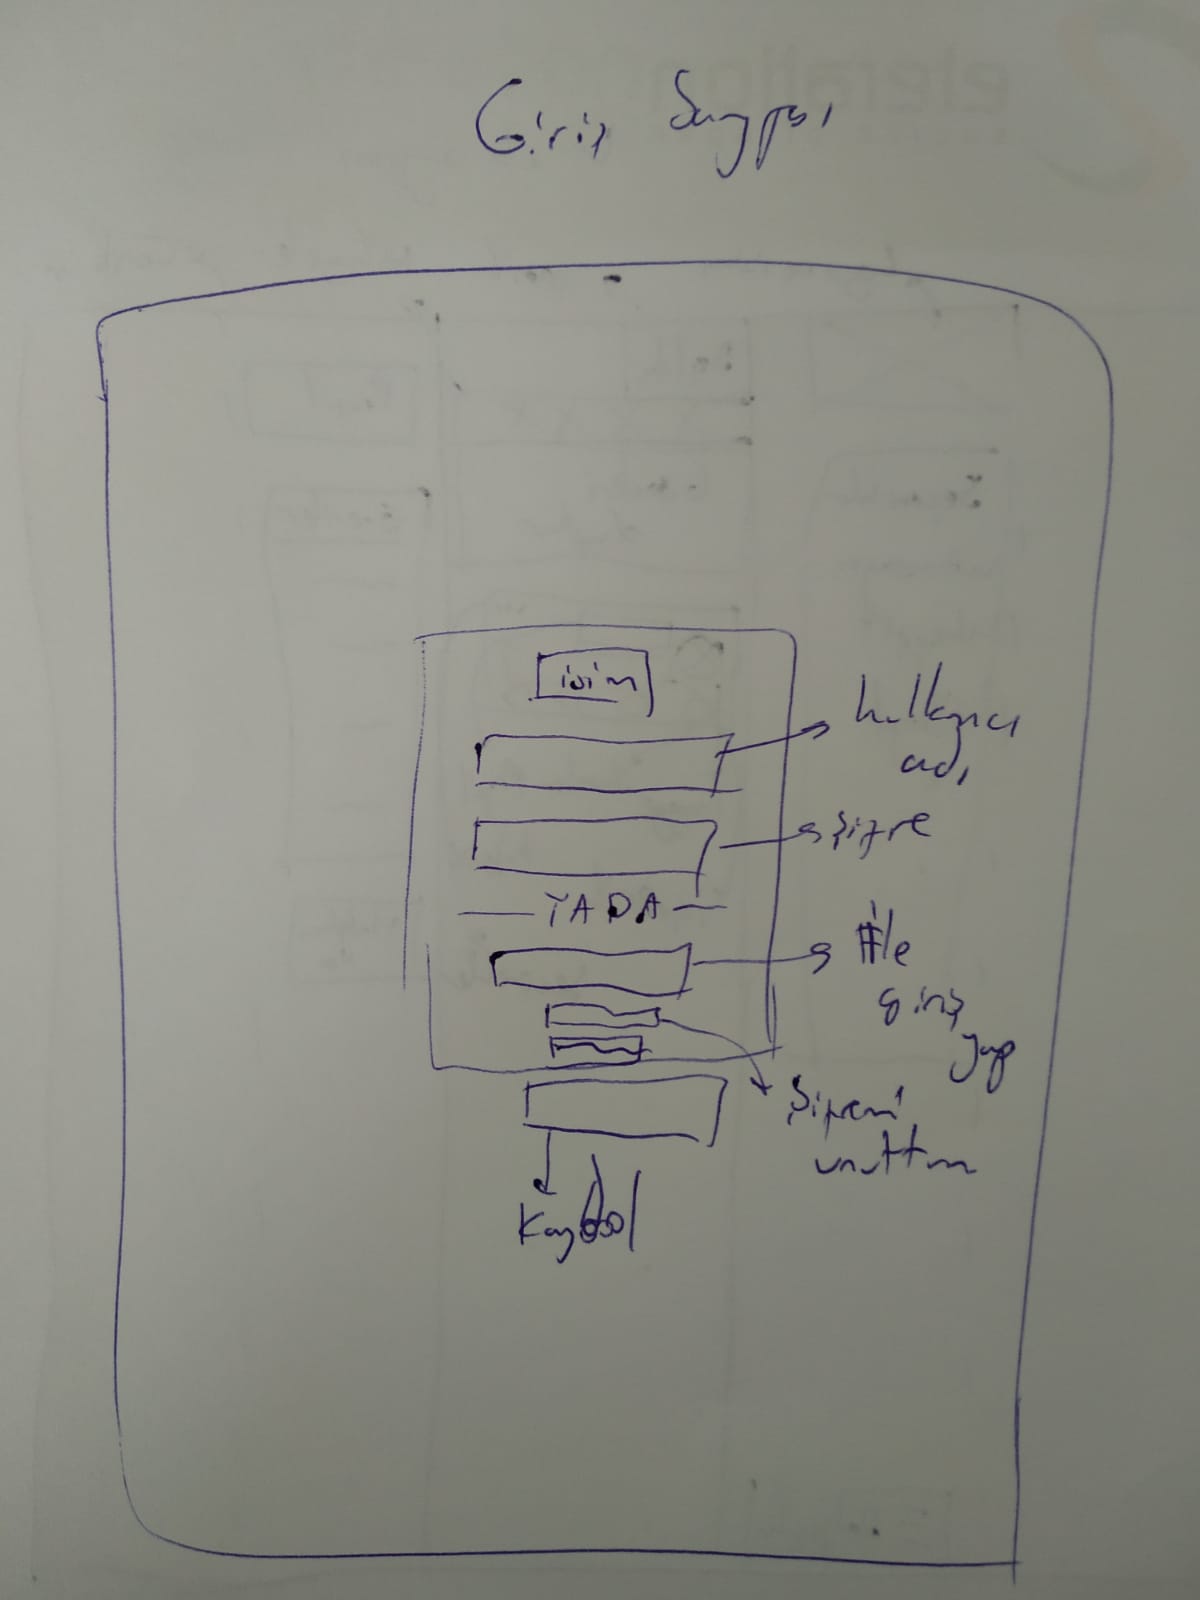 Giriş Sayfası
isim
kullanıcı
adı
şifre
YADA
ile
giriş
yap
Şifremi
unuttum
Kaydol